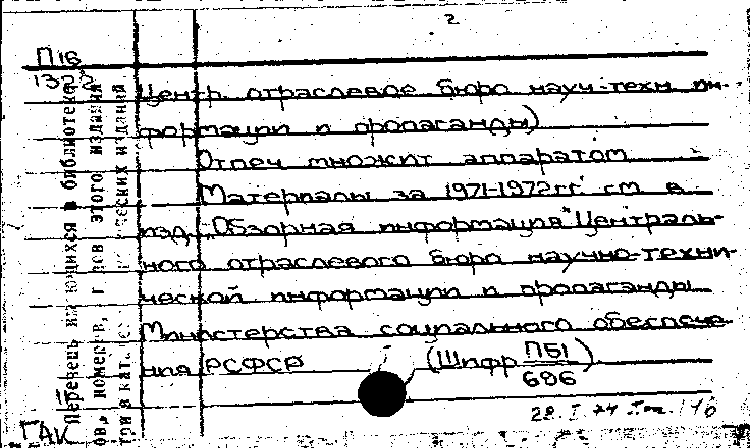 2
П16
1322
Центр. отраслевое бюро науч.-техн. ин-
формации и пропаганды)
Отпеч. множит. аппаратом
Материалы за 1971-1972 гг. см. в
изд. "Обзорная информация" Централь-
ного отраслевого бюро научно-техни-
ческой информации и пропаганды
Министерства социального обеспече-
ния РСФСР (Шифр П51/696)
28. I. 74
ГАК
Перечень имеющихся в библиотеке
ов, номеров, годов этого издания
три в